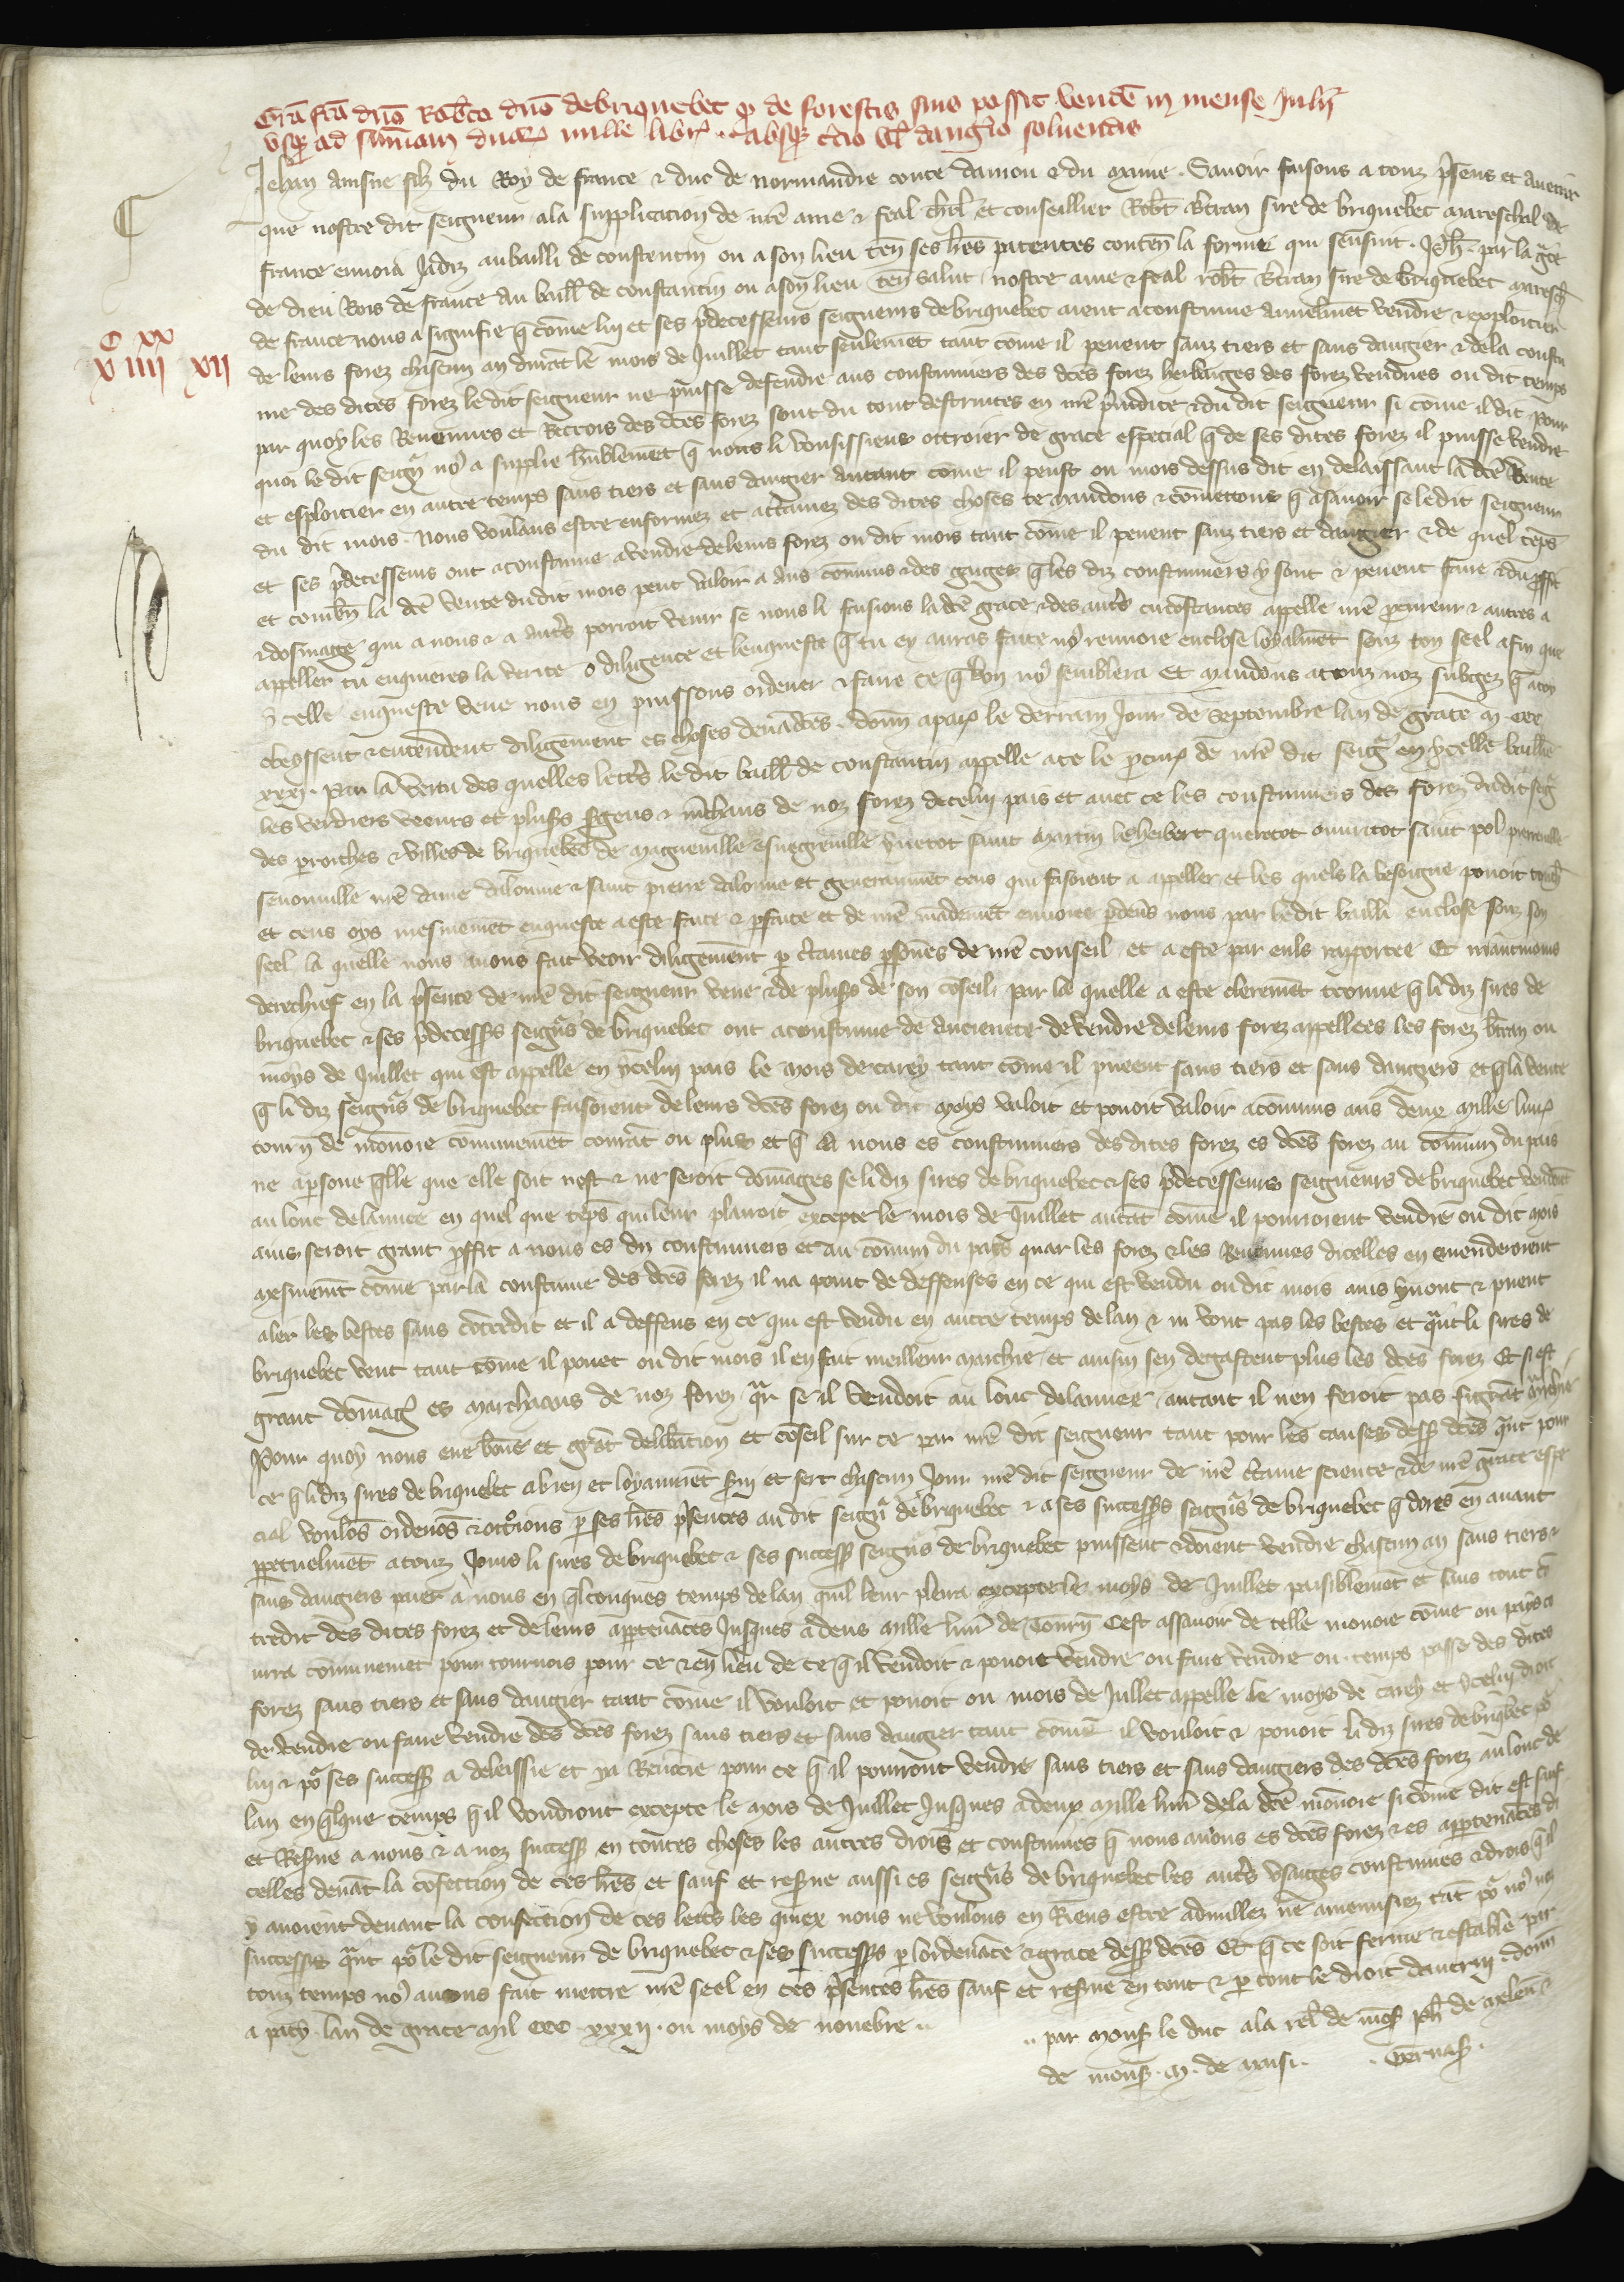 Gra͞ fca͞ dn͞o Rob͞to dn͞o de briquebec q de forestis suis possit vende͞ in mense Julii
vsq ad sum͞am duar͞ mille libr͞ absq t͞cio vl͞ dangio͞ soluendis
Jehan ainsne filz du Roy de france & duc de normandie conte daniou & du maine. Sauoir faisons a touz p͞sens et auenir
que nostre dit seigneur ala supplicacion de nr͞e ame & feal ch͞lr et conseillier Rob͞t B͞tran sire de briquebec mareschal de
france enuoia Jadiz au bailli de constentin ou a son lieu ten͞ ses lr͞es patentes conten͞ la forme qui sensuit. Ph͞ par la gr͞ce
de dieu Rois de france au baill͞ de constantin ou a son lieu ten͞ salut nostre ame & feal rob͞t B͞tran sire de briquebec maresch͞
de france nous a signifie q͞ co͞me luy et ses p͞decesseurs seigneurs de briquebec aient acoustume annuelme͞t vendre & exploitier
de leurs forez chascun an dura͞t le mois de Juillet tant seulleme͞t tant co͞me il peuent sanz tiers et sans dangier & de la coustu
C XX
V IIII XII
me des dites forez le dit seigneur ne puisse defendre aus coustumiers des dc͞es forez herbaiges des forez vendues ou dit temps
par quoy les Reuenues et Recrois des dc͞es forez sont du tout destruites en nr͞e p͞iudice & du dit seigneur si come il dit pour
quoi le dit seign͞ no9 a supplie humbleme͞t q͞ nous li vousissiens ottroier de grace especial q͞ de ses dites forez il puisse vendre
et esploitier en autre temps sans tiers et sans dangier autant co͞me il peust ou mois dessus dit en delaissant la dc͞e vente
du dit mois. Nous voulans estre enformez et ac͞tainez des dites choses te mandons & co͞mettons q͞ asauoir se le dit seigneur
et ses p͞decesseurs ont acoustume a vendre de leurs forez ou dit mois tant co͞me il peuent sanz tiers et dangier & de quel te͞ps
et comb͞n la dc͞e vente du dit mois peut valoir a ans co͞muns & des q͞ les diz coustumiers y sont & peuent faire & du p͞ffit
& do͞mage qui a nous & a aut͞s porroit venir se nous li faisions la dc͞e grace & des aut͞s circo͞stances appelle nr͞e p͞cureur & autres a
appeller tu enquieres la verite o diligence et lenqueste q͞ tu en auras faite no9 renuoie enclose loyalme͞t souz ton seel afin que
ycelle enqueste veue nous en puissons ordener & faire ce q͞ bon no9 semblera Et mandons a touz noz subgez q͞ a toy
obeyssent & entendent diligement es choses deua͞tdc͞es. Donn͞ a paris le derrain Jour de Septembre lan de grace m. ccc
xxxj. Par la vertu des quelles lett͞s le dit baill͞ de constantin appelle a ce le p͞cur͞ de nr͞e dit seig͞ en ycelle baill͞ie
les verdiers veeurs et plus͞s s͞gens & m͞chans de noz forez de celui pais et auec ce les coustumiers des forez du dit seig͞
des parroiches & villes de briquebec de magneuille & suegreuille yuetot saint martin le hebert quetetot ouuretot saint pol pierreuille
senouuille nr͞e dame dalonne & saint pierre dalonne et generaume͞t ceus qui faisoient a appeller et les quels la besoigne pouoit touch͞
et ceus oys mesmeme͞t enqueste a este faite & p͞faite et de nr͞e ma͞deme͞t enuoiee p͞deu͞s nous par le dit bailli enclose souz son
seel la quelle nous auons fait veoir diligeme͞nt p͞ c͞taines p͞sones de nr͞e conseil et a este par euls rapportee Et maintenons
derechief en la p͞sence de nr͞e dit seigneur veue & de plus͞s de son co͞seil par la quelle a este clereme͞t trouue q͞ li diz sires de
briquebec & ses p͞decess͞s seign͞s de briquebec ont acoustume de ancienete de vendre de leurs forez appellees les forez B͞tran ou
moys de Juillet qui est appelle en ycelui pais le mois de carey tant co͞me il pueent sans tiers et sans dangiers et q͞ la vente
q͞ li diz seign͞s de briquebec faisoient de leurs dc͞es forez ou dit moys valoit et pouoit valoir a co͞muns ans deux mille liur͞
tourn͞ de mo͞noie co͞muneme͞t coura͞t ou plus et q͞ a nous es coustumiers des dites forez es dc͞es forez au co͞mun du pais
ne a p͞sone q͞lle que elle soit nest & ne seroit do͞mages se li diz sires de briquebec & ses p͞decesseurs seigneurs de briquebec vendoie͞t
au lonc de lannee en quel que te͞ps qui leur plairoit excepte le mois de Juillet auta͞t co͞me il pourroient vendre ou dit mois
ains seroit grant p͞ffit a nous es diz coustumiers et au co͞mun du pais quar les forez & les Reuenues dicelles en amenderoient
mesmeme͞t co͞me par la coustume des dc͞es forez il na point de deffenses en ce qui est vendu ou dit mois ains y vont & pueent
aler les bestes sans co͞tredit et il a deffens en ce qui est vendu en autre temps de lan & ni vont pas les bestes et q͞nt li sires de
briquebec vent tant co͞me il pouet ou dit mois il en fait meilleur marchie et ainsin sen degastent plus les dc͞es forez Et si est
grant do͞mag͞ es marchans de noz forez q͞r se il vendoit au lonc de lannee autant il nen feroit pas si gra͞t m͞chie
Pour quoy nous eue bo͞ne et gra͞t delib͞acion et co͞seil sur ce par nr͞e dit seigneur tant pour les causes dess͞ dc͞es q͞nt pour
ce q͞ li diz sires de briquebec a bien et loyaume͞t s͞ui et sert chascun Jour nr͞e dit seigneur de nr͞e c͞taine science & de nr͞e grace espe
cial voulo͞s ordeno͞s & ottroions p͞ ses lr͞es p͞sentes au dit seign͞ de briquebec & a ses success͞s seign͞s de briquebec q͞ dores en auant
p͞petuelme͞t a touz Jours li sires de briquebec & ses success͞ seign͞s de briquebec puissent & doient vendre chascun an sans tiers &
sans dangiers paier a nous en q͞lconques temps de lan quil leur plera excepte le moys de Juillet paisibleme͞t et sans tout co͞
tredit des dites forez et de leurs app͞tena͞ces Jusques a deus mille liur͞ de tourn͞ Cest assauoir de telle monoie co͞me ou pays co
urra co͞muneme͞t pour tournois pour ce & en lieu de ce q͞ il vendoit & pouoit vendre ou faire vendre ou temps passe des dites
forez sans tiers et sans dangier tant co͞me il vouloit et pouoit ou mois de Juillet appelle le moys de carey et ycelui droit
de vendre ou faire vendre des dc͞es forez sans tiers et sans dangier tant come il vouloit & pouoit li diz sires de briq͞bec po͞
lui & po͞ ses success͞ a delessie et y a Renoncie pour ce q͞ il pourront vendre sans tiers et sans dangiers des dc͞es forez au lonc de
lan en q͞lque temps q͞ il voudront excepte le mois de Juillet Jusques a deux mille liur͞ de la dc͞e mo͞noie si co͞me dit est sauf
et Res͞ue a nous & a noz success͞ en toutes choses les autres drois et coustumes q͞ nous auons es dc͞es forez & es app͞tena͞ces di
celles deua͞t la co͞fection de ces lr͞es et sauf et res͞ue aussi es seign͞s de briquebec les aut͞s vsaiges coustumes & drois q͞ il
y auoient deuant la confection de ces lett͞s les quiex nous ne voulons en Riens estre adnullez ne amenusiez ta͞t po͞ no9 noz
success͞s q͞nt po͞ le dit seigneur de briquebec & ses success͞s p͞ lordena͞ce & grace dess͞ dc͞es Et q͞ ce soit ferme & estable par
touz temps no9 auons fait mettre nr͞e seel en ces p͞sentes lr͞es sauf et res͞ue en tout & p͞ tout le droit dautrui donn͞
a paris lan de grace mil ccc xxxij. ou moys de nouebre..
.. par mons͞ le duc a la rel͞ de mo͞s͞ Jeh͞ de meleu͞ &
de mons͞. m. de mausi. . Geruas͞ .